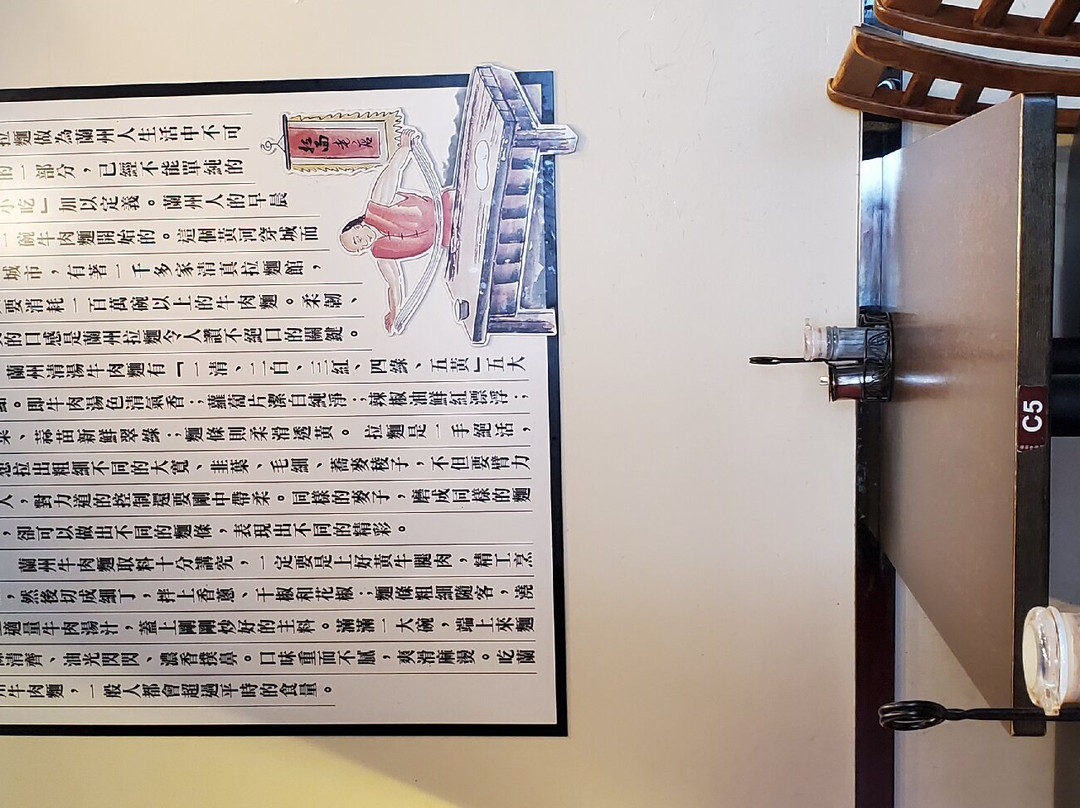 拉麵做為蘭州人生活中不可
的一部分，已經不能單純的
小吃」加以定義。蘭州人的早晨
一碗牛肉麵開始的。這個黃河穿城而
城市，有著一千多家清真拉麵館，
要消耗一百萬碗以上的牛肉麵。柔韌、
的口感是蘭州拉麵令人讚不絕口的關鍵。
蘭州清湯牛肉麵有「一清、二白、三紅、四綠、五黃」五大
。即牛肉湯色清氣香；蘿蔔片潔白純淨；辣椒油鮮紅漂浮；
菜、蒜苗新鮮翠綠；麵條則柔滑透黃。拉麵是一手絕活，
想拉出粗細不同的大寬、韭葉、毛細、蕎麥稜子，不但要臂力
人，對力道的控制還要剛中帶柔。同樣的麥子，磨成同樣的麵
，卻可以做出不同的麵條，表現出不同的精彩。
蘭州牛肉麵取料十分講究，一定要是上好黃牛腿肉，精工烹
，然後切成細丁，拌上香蔥、干椒和花椒；麵條粗細隨客，澆
適量牛肉湯汁，蓋上剛剛炒好的主料。滿滿一大碗，端上來麵
清齊、油光閃閃、濃香撲鼻。口味重而不膩，爽滑麻燙。吃蘭
牛肉麵，一般人都會超過平時的食量。
拉面老店
C5